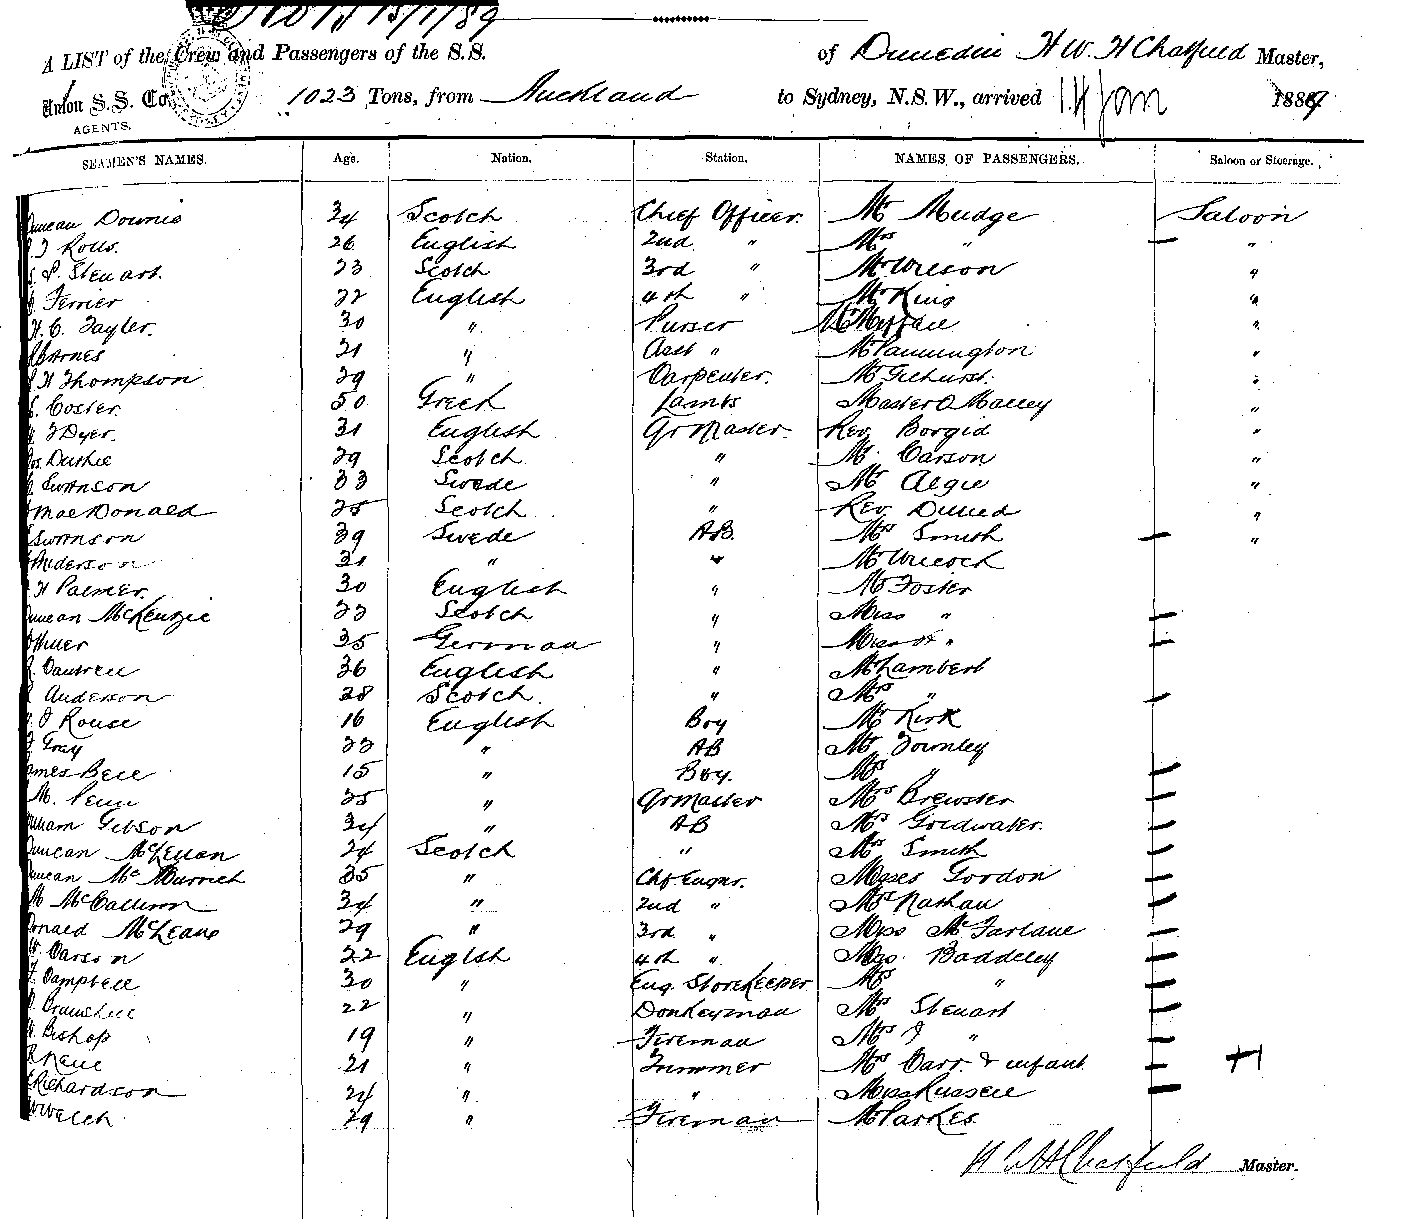 15/1/89
A LIST of the Crew and Passengers of the S.S. of Dunedin H W. H Chatfield Master,
Union S.S. Co. 1023 Tons, from Auckland to Sydney, N.S.W., arrived 14 Jan 1889
AGENTS.
SEAMEN'S NAMES. Age. Nation. Station. NAMES OF PASSENGERS. Saloon or Steerage.
Duncan Downie 34 Scotch Chief Officer. Mr Mudge Saloon
Rolls. 26 English 2nd " Mrs " "
Steuart. 23 Scotch 3rd " Mr Wilson "
Ferrier 22 English 4th " Mr King "
H. C. Tayler. 30 " Purser "
Barnes 21 " Asst " Mr Pannington "
H Thompson 29 " Carpenter. Mr Gilhurst. "
Coster. 50 Greek Lamps Master O Malley "
Dyer. 31 English Qr Master. Rev Borgid "
Duthie 29 Scotch " Mr Carson "
Swanson 33 Swede " Mr Algie "
MacDonald 25 Scotch " Rev "
Swanson 39 Swede AB. Mrs Smith "
Anderson 31 " " Mr Wilcock
H Palmer. 30 English " Mr Foster
Duncan McKenzie 23 Scotch " Miss "
35 German " Miss "
36 English " Mr Lambert
Anderson 28 Scotch. " Mrs "
Rouse 16 English Boy Mr Kirk
Gray 23 " AB Mr Townley
James Bell 15 " Boy. Mrs "
M. Penn 25 " Qr Master Mrs Brewster
William Gibson 34 " AB Mrs Goldwater.
Duncan McLellan 24 Scotch " Mrs Smith
Duncan McMurrich 35 " Chf Engnr. Misses Gordon
M McCallum 34 " 2nd " Mrs Nathan
Donald McLeane 29 " 3rd " Miss McFarlane
Carson 22 English 4th " Mrs. Baddeley
Campbell 30 " Eng. Storekeeper Mrs "
22 " Donkeyman Mrs Steuart
Bishop 19 " Fireman Mrs J "
21 " Trimmer Mrs Carr & infant
Richardson 24 " " Miss Russell
Welch 29 " Fireman Mr Parkes
H W H Chatfield Master.